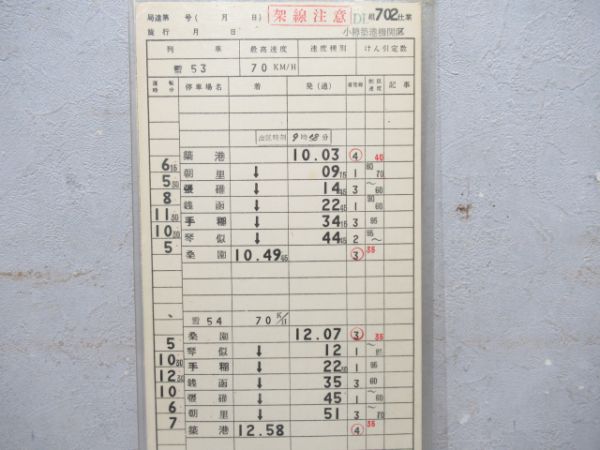 局達第 号( 月 日) 架線注意 D1組702仕業
施行 月 日 小樽築港機関区
列車 最高速度 速度種別 けん引定数
雪53 70 KM/H
運転時分 停車場名 着 発(通) 着発線 制限速度 記事
出区時刻 9時48分
築港 10.03 ④ 40
6 15 朝里 ↓ 09 15 1 80 70
5 30 張碓 ↓ 14 45 3 ~60
8 銭函 ↓ 22 45 1 90 60
11 30 手稲 ↓ 34 15 3 95
10 30 琴似 ↓ 44 45 2 95~
5 桑園 10.49 45 ③ 35
雪54 70 K/H
桑園 12.07 ③ 35
5 琴似 ↓ 12 1
10 30 手稲 ↓ 22 30 1 95
12 30 銭函 ↓ 35 3 60
10 張碓 ↓ 45 1 ~60
6 朝里 ↓ 51 3 70
7 築港 12.58 ④ 35